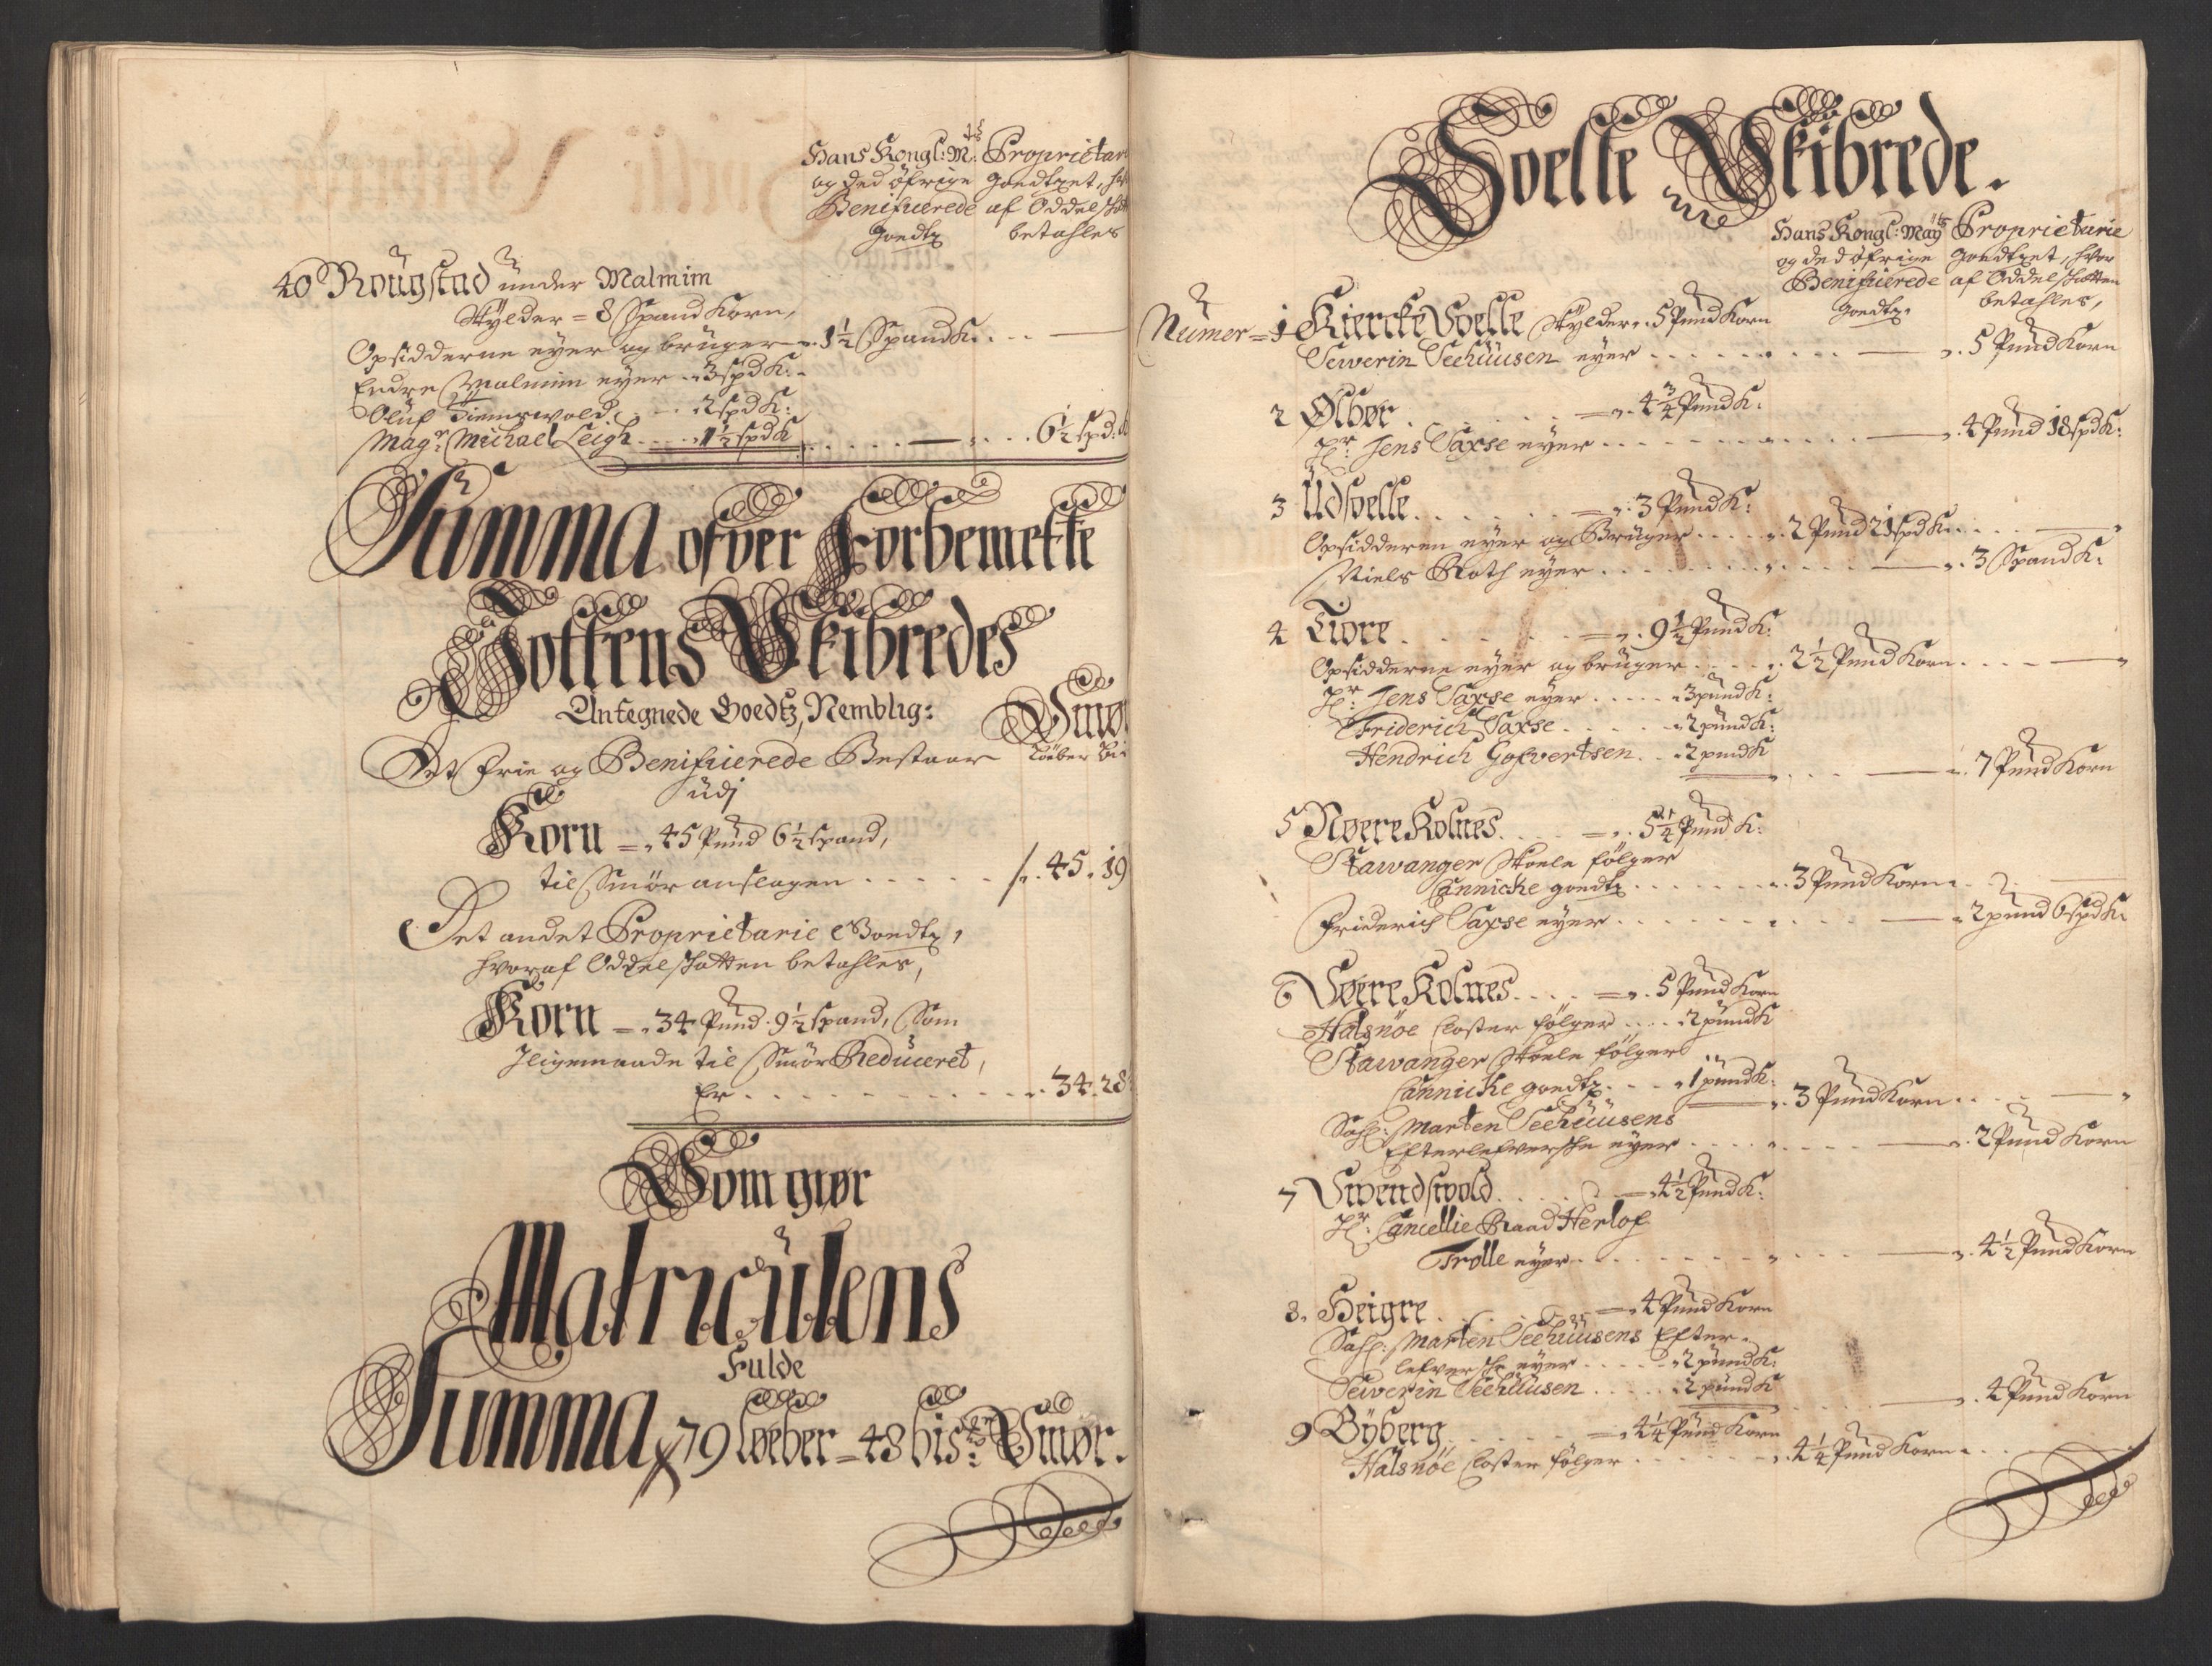 Hans Kongl: M:ts Proprietari
og Ded öfrige goedtzet, hv
Benificerede af Oddelskat
goedtz betahles
40 Rougstad under Malmim
Skylder = 8 Spand Korn,
Opsidderne eyer og bruger „ 1½ Spand K:
Endre Malmim eyer „ 3 spd K:
Oluf Tiemswold „ 2 spd K:
Magr: Michael Leigh „ 1½ spd K „ 6½ spd:
Summa ofver Forbemelte
Jottens Skibredes
Antegnede Goedtz, Nemblig:
Smø
Det frie og Benificerede Bestaar Løeber Bi
udj
Korn = „ 45 Pund 6½ spand,
til Smör anslagen „ 45. 19
Det andet Proprietarie Goedtz,
hvoraf Oddelskatten betahles,
Korn = „ 34 Pund. 9½ spand, Som
Jligemaade til Smör Reduceret,
Er „ 34. 28
Som giør
Matriculens
Fulde
Summa 79 Løeber = 48 bis: Smør.
Soelle Skibrede.
Hans Kongl: Mayts Proprietarie
og ded öfrige goedtzet, hvor
Benificerede af Oddelskatten
goedtz. betahles,
Numer = 1 Kiercke Soelle Skylder „ 5 Pund Korn
Sewerin Seehuusen eyer „ 5 Pund Korn
2 Ølbør = „ 4¾ Pund K:
Hr: Jens Saxse eyer „ 4 Pund 18 spd K:
3 Udsoelle = „ 3 Pund K:
Opsidderen eyer og Bruger „ 2 Pund 21 spd K:
Niels Roth eyer „ 3 Spand K:
4 Tiore = „ 9½ Pund K:
Opsidderne eyer og bruger „ 2½ Pund Korn
Hr: Jens Saxse eyer „ 3 pund K:
Friderich Saxse „ 2 pund K:
Hendrich Gofvertsen „ 2 pund K „ 7 Pund Korn
5 Nøere Kolnes = „ 5¼ Pund K:
Stawanger Skoele fölger
Cannicke goedtz „ 3 Pund Korn
Friderich Saxse eyer „ 2 pund 6 spd K:
6 Søere Kolnes = „ 5 Pund Korn
Halsnöe Closter fölger „ 2 pund K
Stawanger Skoele fölger
Cannicke goedtz „ 1 pund K: „ 3 Pund Korn
Sahl: Marten Seehuusens
Efterlefverske eyer „ 2 Pund Korn
7 Swendswold = „ 4½ Pund K:
Hr: Cancellie Raad Herlof
Trolle eyer „ 4½ Pund Korn
8. Heigre = „ 4 Pund Korn
Sahl: Marten Seehuusens Efter-
lefverske eyer „ 2 pund K:
Sewerin Seehuusen „ 2 pund K „ 4 Pund Korn
9 Byberg = „ 4¼ Pund Korn
Halsnöe Closter fölger „ 4¼ Pund Korn